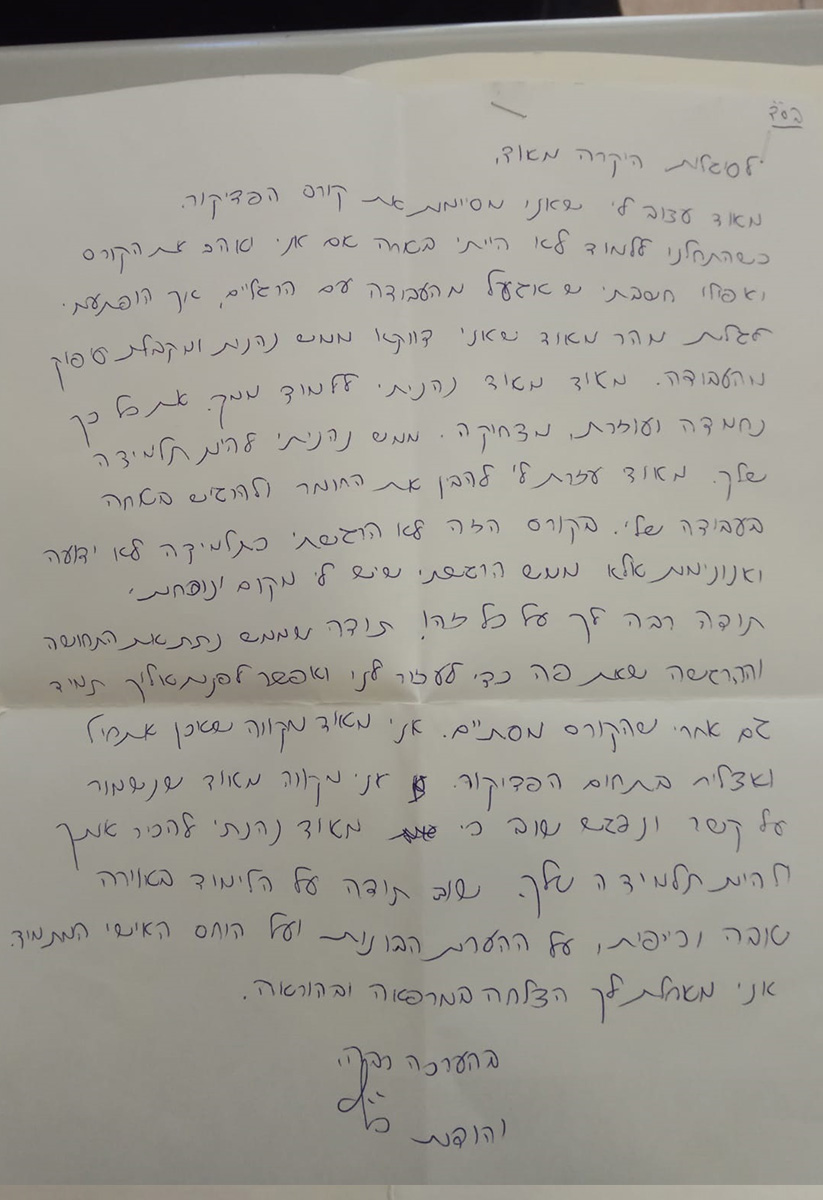 בס"ד
לסיגלית היקרה מאוד,
מאוד עצוב לי שאני מסיימת את קורס הפדיקור.
כשהתחלנו ללמוד לא הייתי בטוחה אם אני אוהב את הקורס
ואפילו חשבתי שאגעל מהעבודה עם הרגליים, אך הופתעתי
לגלות מהר מאוד שאני דווקא ממש נהנית ומקבלת סיפוק
מהעבודה. מאוד מאוד נהניתי ללמוד ממך. את כל כך
נחמדה ועוזרת, מצחיקה. ממש נהניתי להיות תלמידה
שלך. מאוד עזרת לי להבין את החומר ולהרגיש בטוחה
בעבודה שלי. בקורס הזה לא הרגשתי כתלמידה לא ידועה
ואנונימית אלא ממש הרגשתי שיש לי מקום
תודה רבה לך על כל זה! תודה שממש נתת את התחושה
וההרגשה שאת פה כדי לעזור לי ואפשר לפנות אליך תמיד
גם אחרי שהקורס מסתיים. אני מאוד מקווה שאכן אתחיל
ואצליח בתחום הפדיקור. אני מקווה מאוד שנשמור
על קשר ונפגש שוב כי מאוד נהנתי להכיר אותך
להיות תלמידה שלך. שוב תודה על הלימוד באוירה
טובה וכייפית, על ההערות הבונות ועל היחס האישי המתמיד.
אני מאחלת לך הצלחה במרפאה ובהוראה.
בהערכה רבקי
והודית